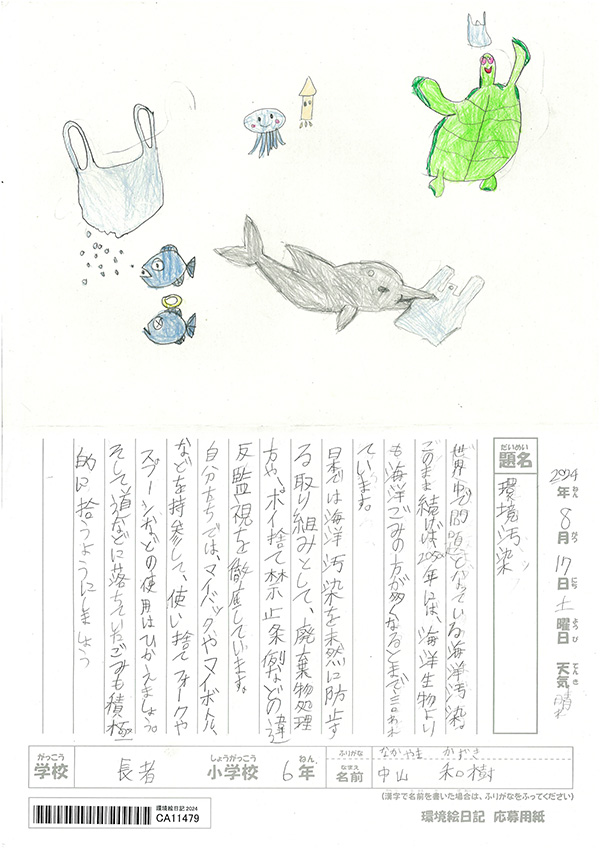 2024年 8月 17日 土曜日 天気 晴れ
ねん がつ にち ようび てんき
だいめい
題名
環境汚染
世界中で問題となっている海洋汚染。
このまま続けば2050年には、海洋生物より
も海洋ごみの方が多くなるとまで言われ
ています。
日本では海洋汚染を未然に防止す
る取り組みとして、廃棄物処理
方や、ポイ捨て禁止条例などの違
反監視を徹底しています。
自分たちでは、マイバックやマイボトル、
などを持参して、使い捨てフォークや
スプーンなどの使用はひかえましょう。
そして道などに落ちていたごみも積極
的に拾うようにしましょう
がっこう しょうがっこう ねん
学校 長者 小学校 6年
ふりがな なかやま かずき
なまえ
名前 中山 和樹
(漢字で名前を書いた場合は、ふりがなをふってください)
環境絵日記 2024
CA11479
環境絵日記 応募用紙